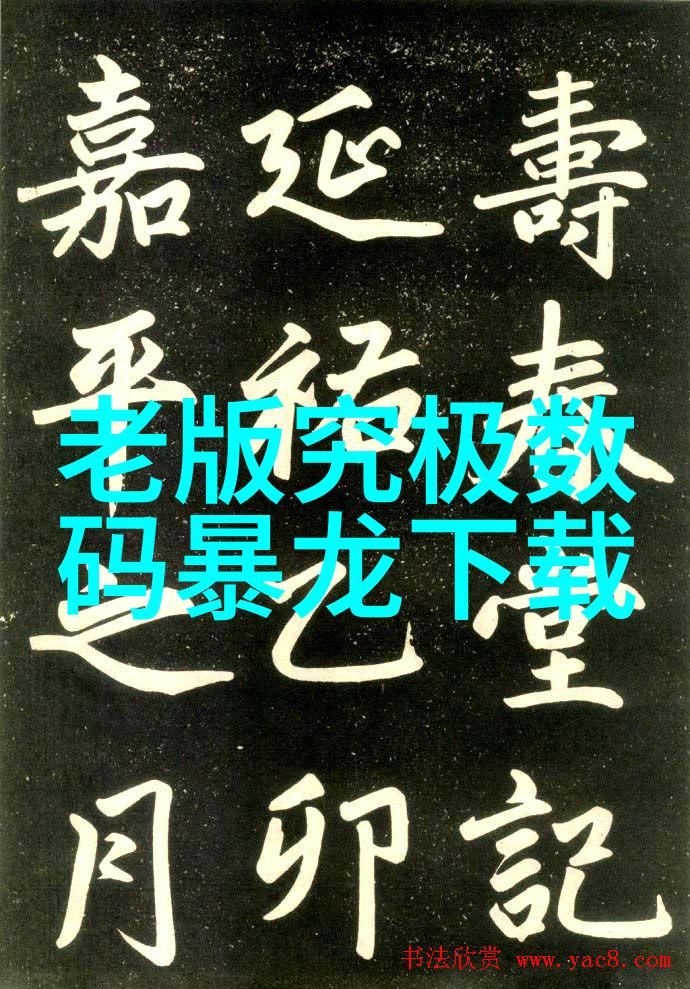 壽春堂記
延祐乙卯
嘉平之月
老版究极数
码暴龙下载
书法欣赏 www.yac8.com